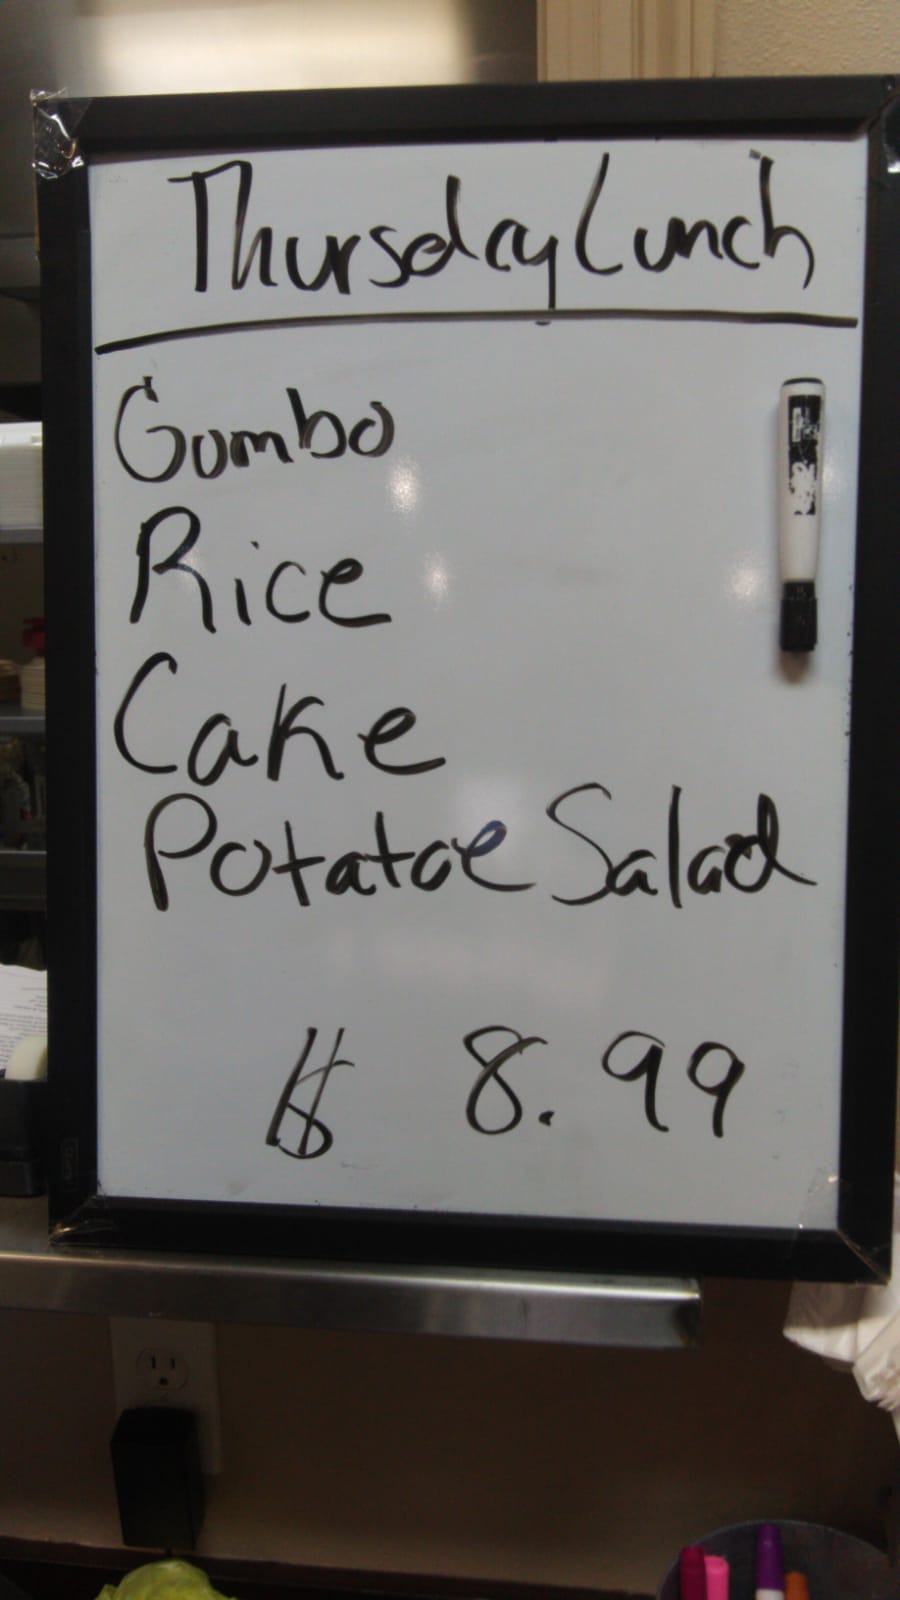 Thursday Lunch
Gumbo
Rice
Cake
Potatoe Salad
$ 8.99